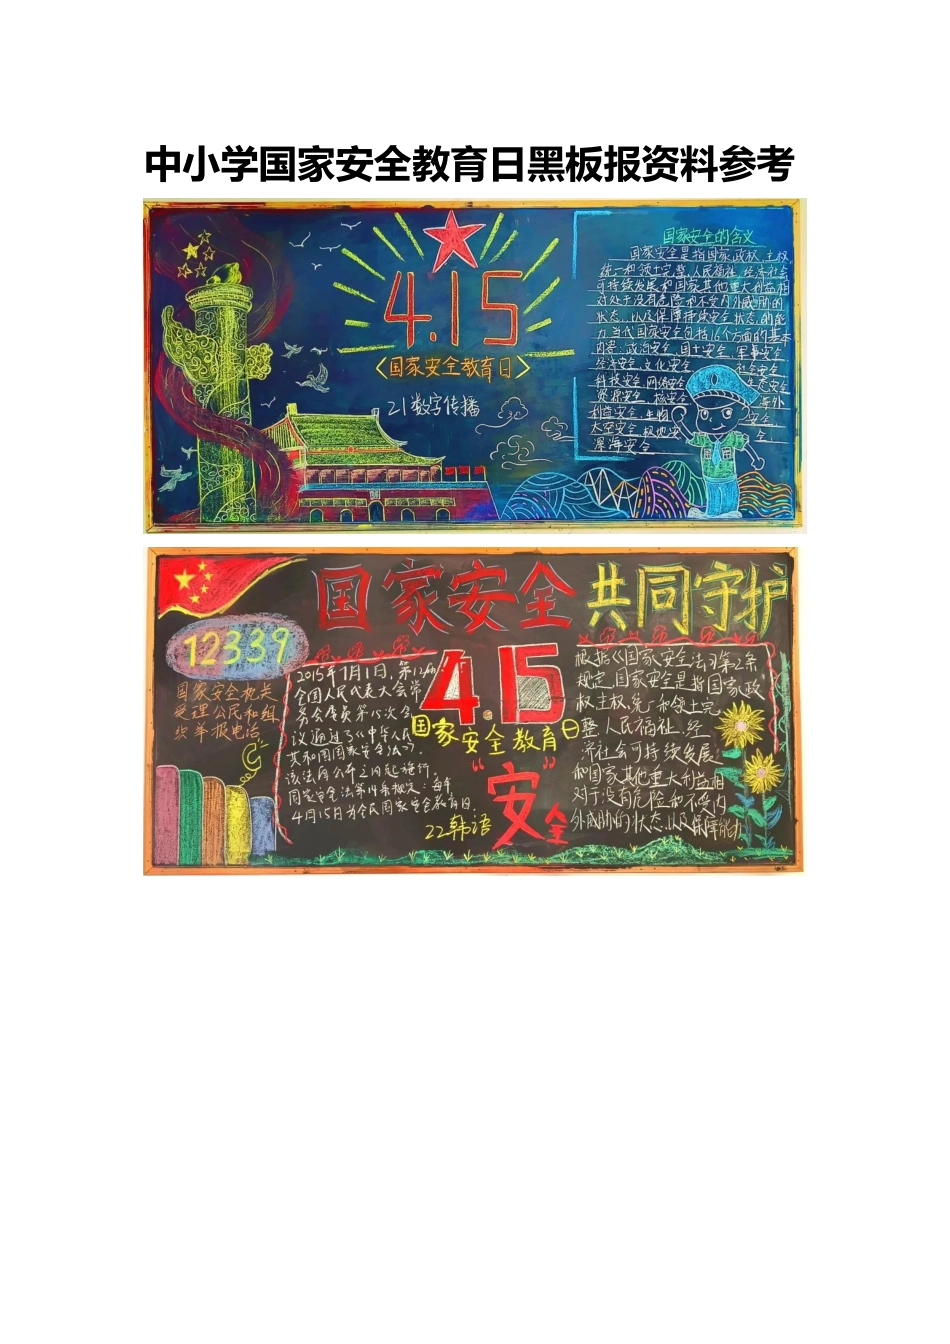 中小学国家安全教育日黑板报资料参考
4.15
<国家安全教育日>
21数字传播
国家安全的含义
国家安全是指国家政权、主权、
统一和领土完整、人民福祉、经济社会
可持续发展和国家其他重大利益相
对处于没有危险和不受内外威胁的
状态，以及保障持续安全状态的能
力.当代国家安全包括16个方面的基本
内容：政治安全、国土安全、军事安全、
经济安全、文化安全、社会安全、
科技安全、网络安全、生态安全
资源安全、核安全、海外
利益安全、生物安全、
太空安全、极地安全、
深海安全
国家安全 共同守护
12339
国家安全机关
受理公民和组
织举报电话
2015年7月1日，第12届
全国人民代表大会常
务会委员第15次会
议通过了《中华人民
共和国国家安全法》，
该法同公布之日起施行。
国家安全法第14条规定：每年
4月15日为全民国家安全教育日。
4.15
国家安全教育日
“安”全
22韩语
根据《国家安全法》第2条
规定，国家安全是指国家政
权、主权、统一和领土完
整、人民福祉、经
济社会可持续发展
和国家其他重大利益相
对于没有危险和不受内
外威胁的状态，以及保障能力